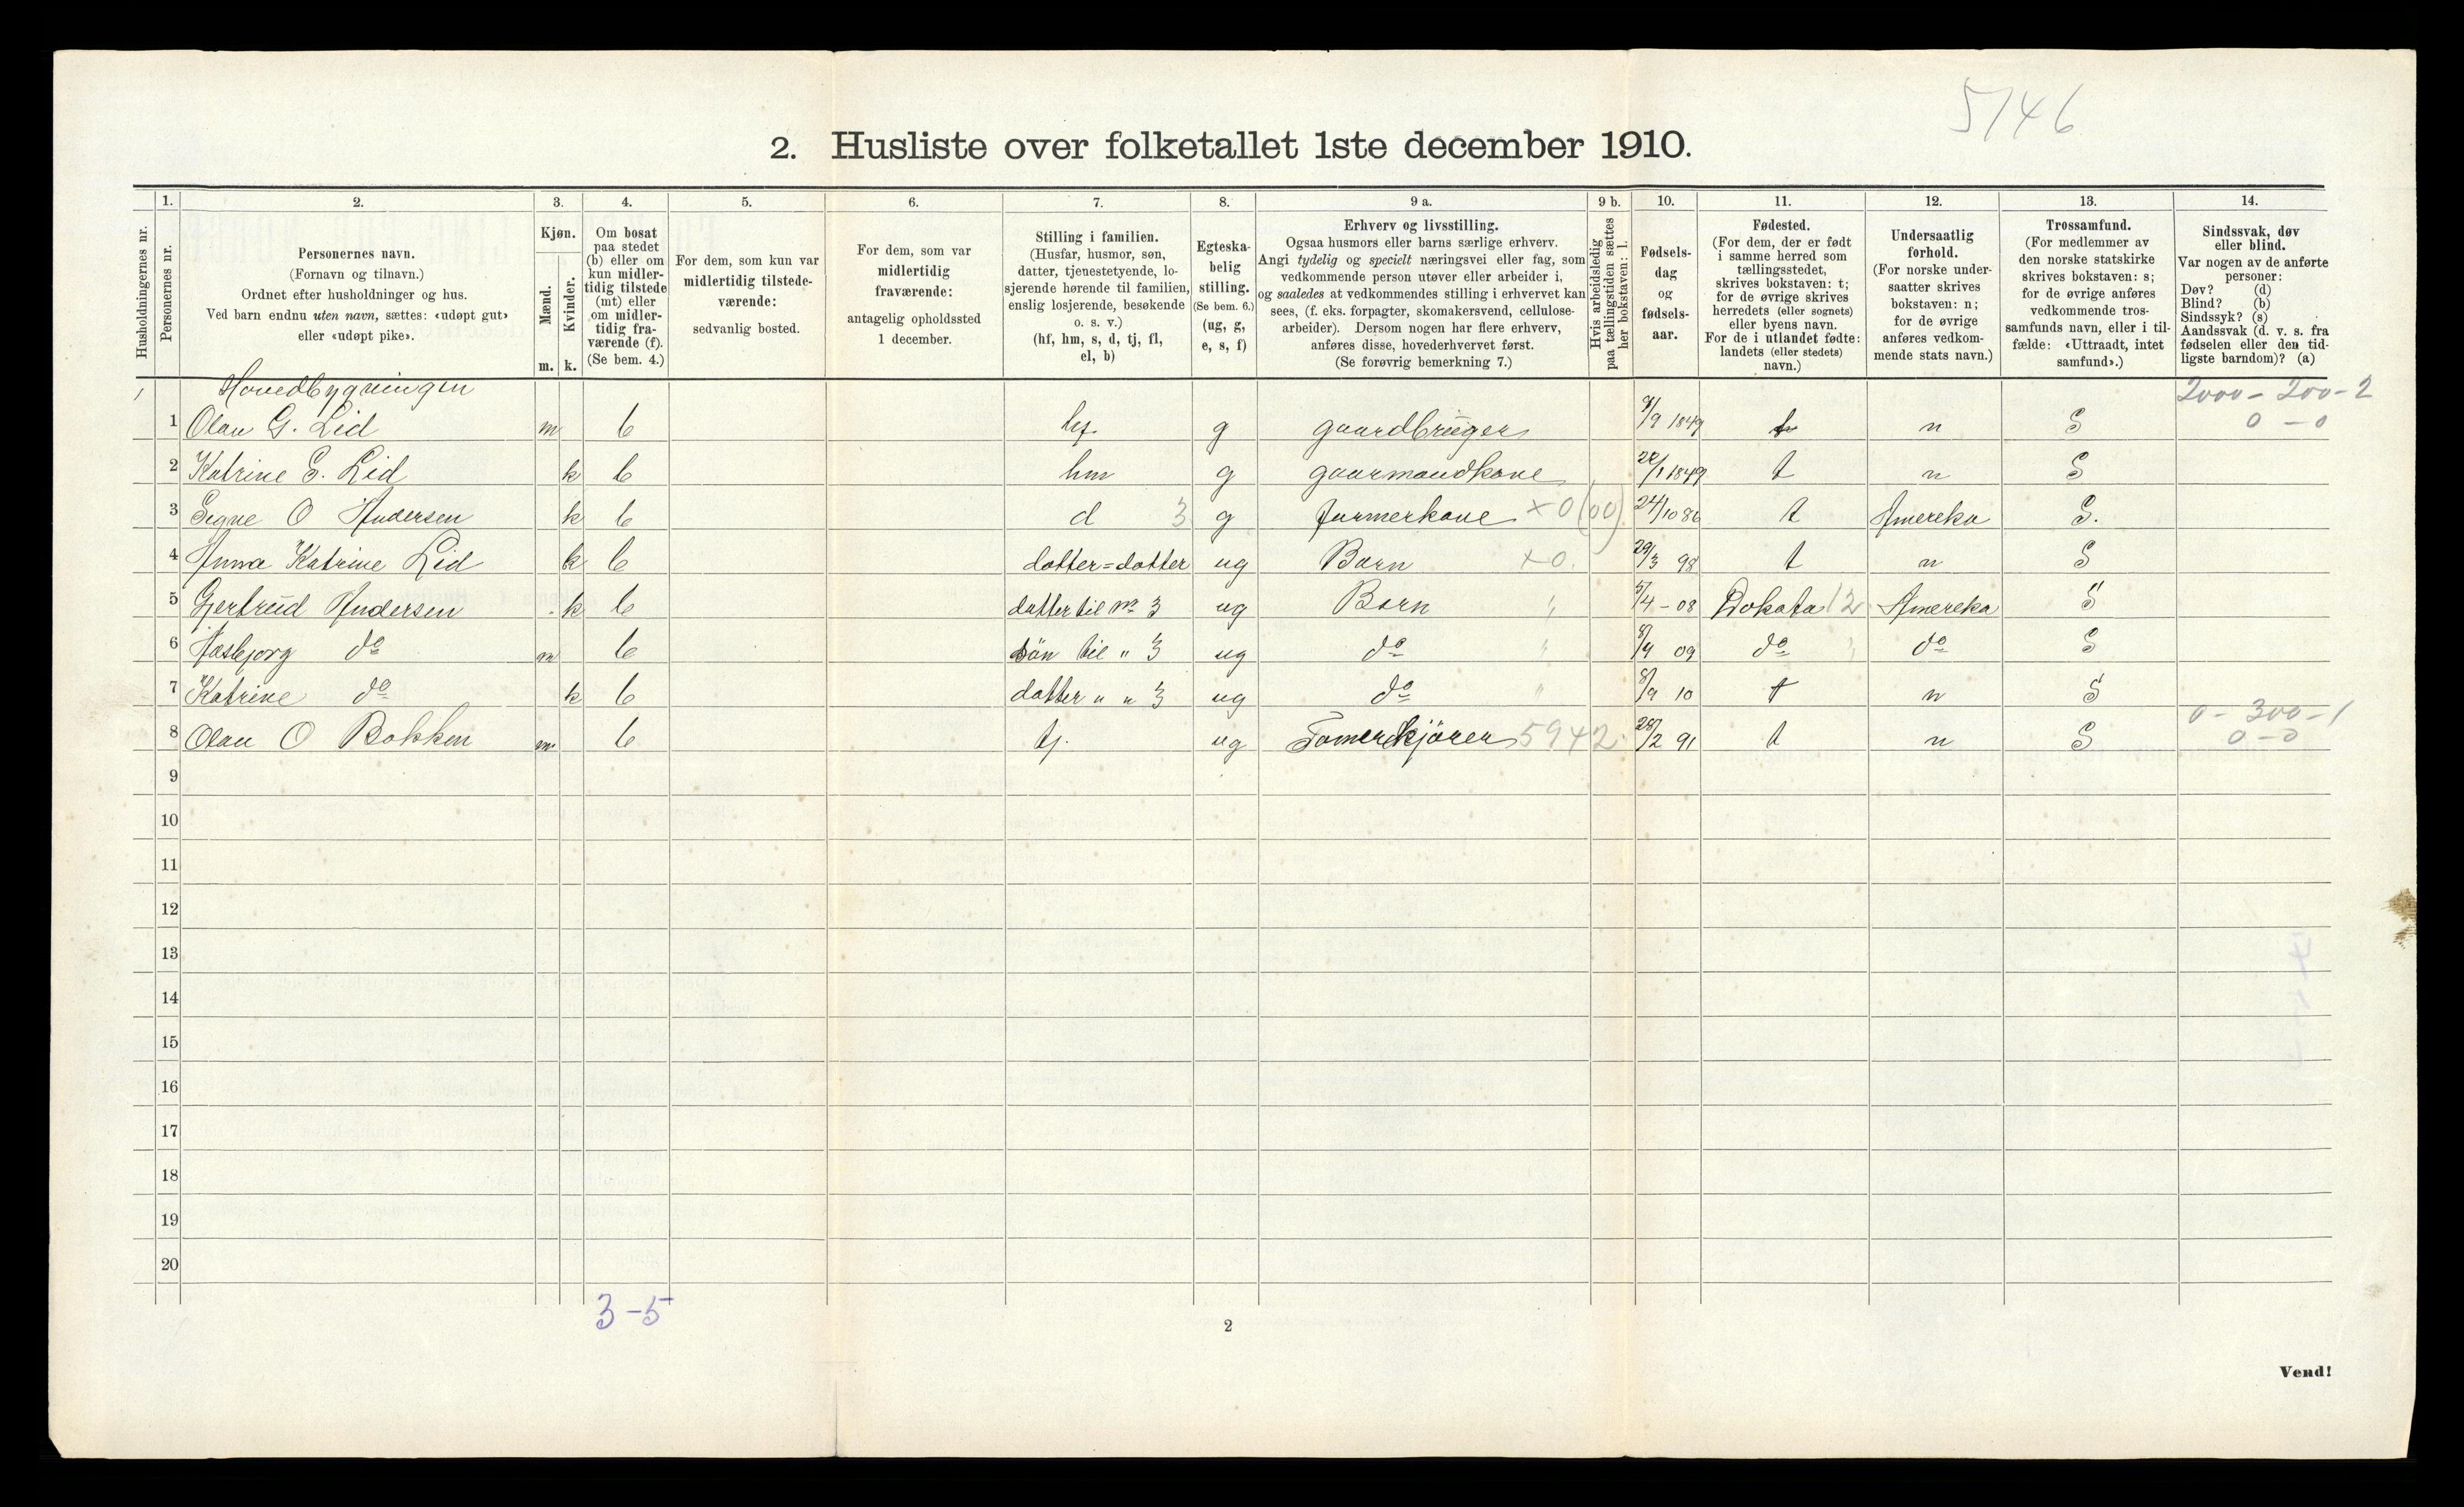 5746
2. Husliste over folketallet 1ste december 1910.
Husholdningernes nr.
1. Personernes nr.
2. Personernes navn. (Fornavn og tilnavn.) Ordnet efter husholdninger og hus. Ved barn endnu uten navn, sættes: «udøpt gut» eller «udøpt pike».
3. Kjøn. Mænd. m. Kvinder. k.
4. Om bosat paa stedet (b) eller om kun midlertidig tilstede (mt) eller om midlertidig fraværende (f). (Se bem. 4.)
5. For dem, som kun var midlertidig tilstedeværende: sedvanlig bosted.
6. For dem, som var midlertidig fraværende: antagelig opholdssted 1 december.
7. Stilling i familien. (Husfar, husmor, søn, datter, tjenestetyende, losjerende hørende til familien, enslig losjerende, besøkende o. s. v.) (hf, hm, s, d, tj, fl, el, b)
8. Egteskabelig stilling. (Se bem. 6.) (ug, g, e, s, f)
9 a. Erhverv og livsstilling. Ogsaa husmors eller barns særlige erhverv. Angi tydelig og specielt næringsvei eller fag, som vedkommende person utøver eller arbeider i, og saaledes at vedkommendes stilling i erhvervet kan sees, (f. eks. forpagter, skomakersvend, cellulosearbeider). Dersom nogen har flere erhverv, anføres disse, hovederhvervet først. (Se forøvrig bemerkning 7.)
9 b. Hvis arbeidsledig paa tællingstiden sættes her bokstaven: l.
10. Fødselsdag og fødselsaar.
11. Fødested. (For dem, der er født i samme herred som tællingsstedet, skrives bokstaven: t; for de øvrige skrives herredets (eller sognets) eller byens navn. For de i utlandet fødte: landets (eller stedets) navn.)
12. Undersaatlig forhold. (For norske undersaatter skrives bokstaven: n; for de øvrige anføres vedkommende stats navn.)
13. Trossamfund. (For medlemmer av den norske statskirke skrives bokstaven: s; for de øvrige anføres vedkommende trossamfunds navn, eller i tilfælde: «Uttraadt, intet samfund».)
14. Sindssvak, døv eller blind. Var nogen av de anførte personer: Døv? (d) Blind? (b) Sindssyk? (s) Aandssvak (d. v. s. fra fødselen eller den tidligste barndom)? (a)
1 Hovedbygningen 2000 - 200 - 2
1 Olau G. Lid m b hf. g gaardbruger 9/9 1849 t n S 0 - 0
2 Katrine S. Lid k b hm g gaarmandkone 22/1 1849 t n S
3 Signe O Andersen k b d 3 g farmerkone x 0 (00) 24/10 86 t Amereka S.
4 Anna Katrine Lid k b datter=datter ug Barn x 0. 29/3 98 t n S
5 Gertrud Andersen k b datter til nr 3 ug Barn " 5/4 - 08 Dokota 12 Amereka S
6 Aasbjorg do m b sön til " 3 ug do " 8/4 09 do " do S
7 Katrine do k b datter " " 3 ug do " 8/9 10 t n S
8 Olau O Bakken m b tj. ug Tömerkjörer 5942 28/2 91 t n S 0 - 300 - 1 0 - 0
9
10
11
12
13
14
15
16
17
18
19
20
3 - 5
2
Vend!